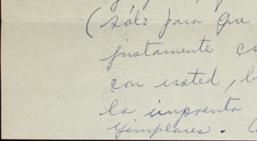 (sólo para que
justamente
con usted, l
la imprenta
ejemplares.